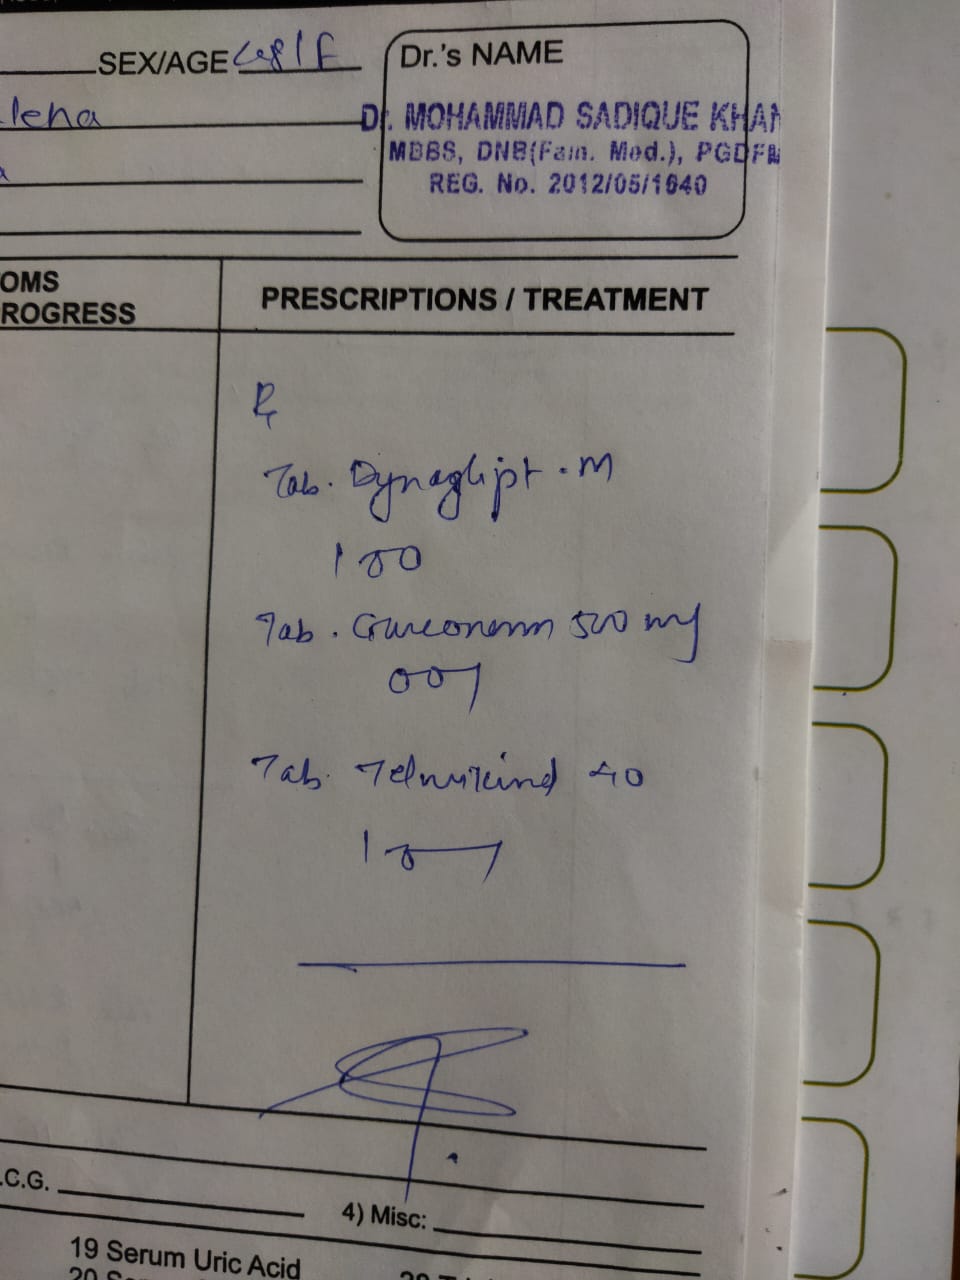 SEX/AGE 48/F
Dr.'s NAME
Dr. MOHAMMAD SADIQUE KHAN
MBBS, DNB(Fam. Med.), PGDFM
REG. No. 2012/05/1640
OMS
ROGRESS
PRESCRIPTIONS / TREATMENT
Rx
Tab. Dynaglipt - M
1 0 0
Tab. 500 mg
0 0 1
Tab. Telmikind 40
1
.C.G.
4) Misc:
19 Serum Uric Acid